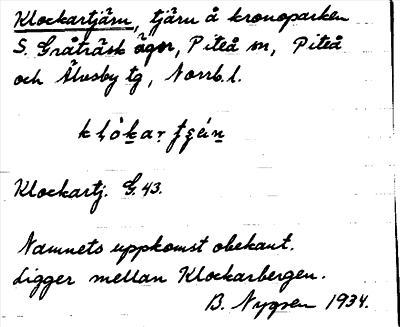 Klockartjärn, tjärn å kronoparken
S. Gråträsk ägor, Piteå sn, Piteå
och Älvsby tg, Norrb. l.
Klockartj. G. 43.
Namnets uppkomst obekant.
Ligger mellan Klockarbergen.
B. Nygren 1934.